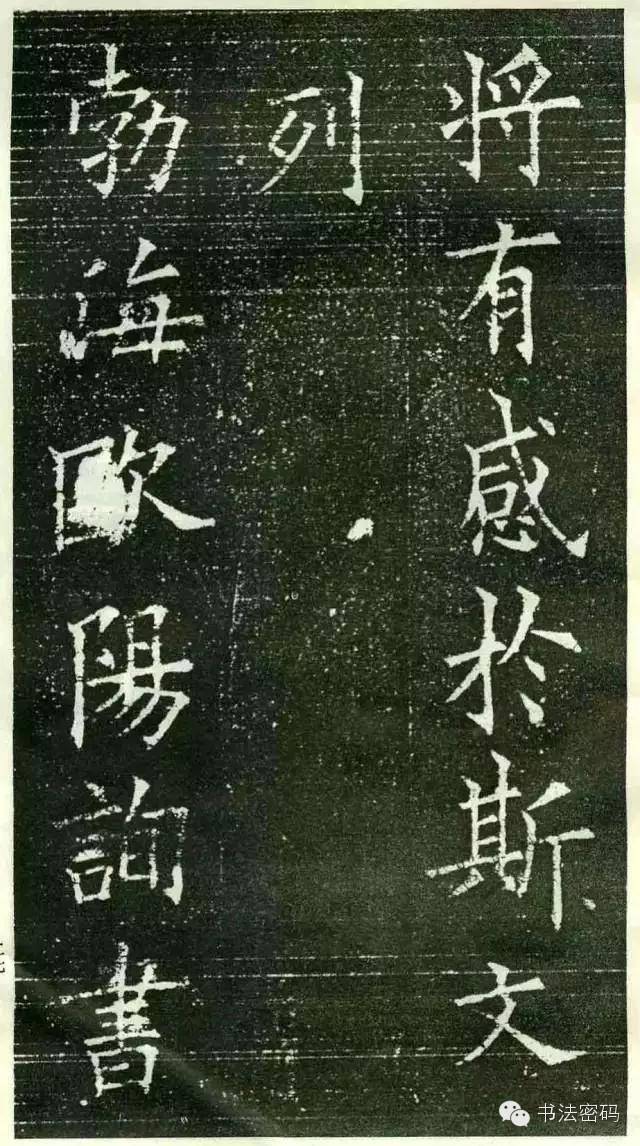 将有感於斯文
列
勃海歐陽詢書
书法密码